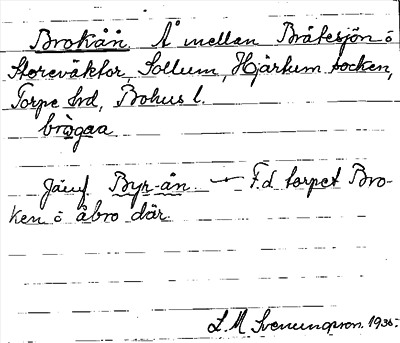 Brokån Å mellan Bråtesjön o
Storeväktor, Sollum, Hjärtum socken,
Torpe hd, Bohus l.
brògaa
Jämf. Byr-ån. — F.d. torpet Bro-
ken o åbro där.
L. M. Svenungsson. 1936.